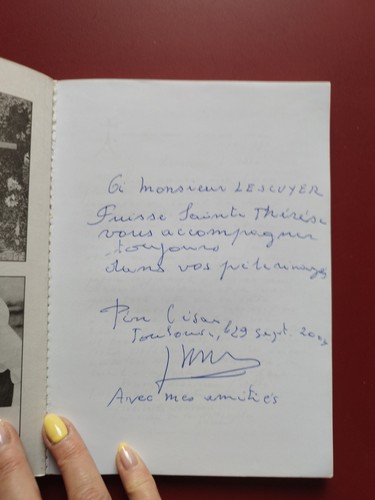 à Monsieur LESCUYER
Puisse Sainte Thérèse
vous accompagner
toujours
dans vos pèlerinages
Toulouse, le 29 sept.
Avec mes amitiés